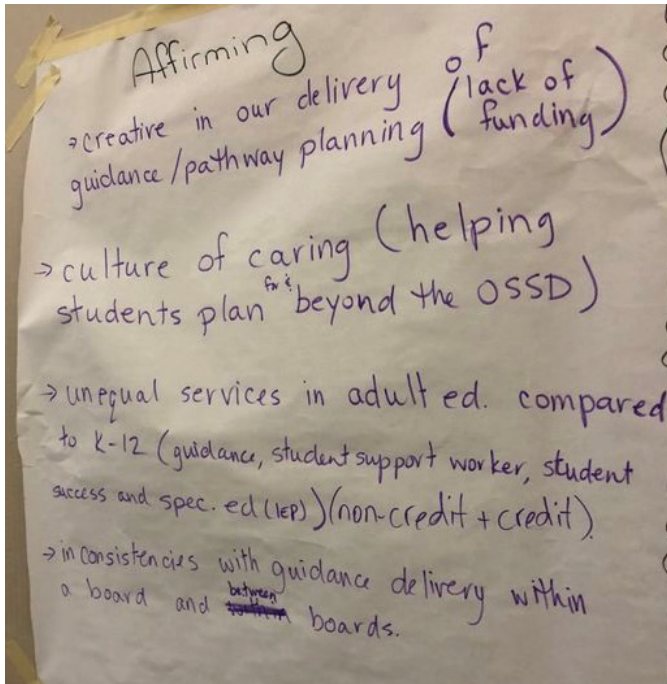 Affirming
→creative in our delivery of
guidance/pathway planning (lack of
funding)
→culture of caring (helping
students plan for & beyond the OSSD)
→unequal services in adult ed. compared
to K-12 (guidance, student support worker, student
success and spec. ed (IEP)) (non-credit + credit).
→inconsistencies with guidance delivery within
a board and between boards.